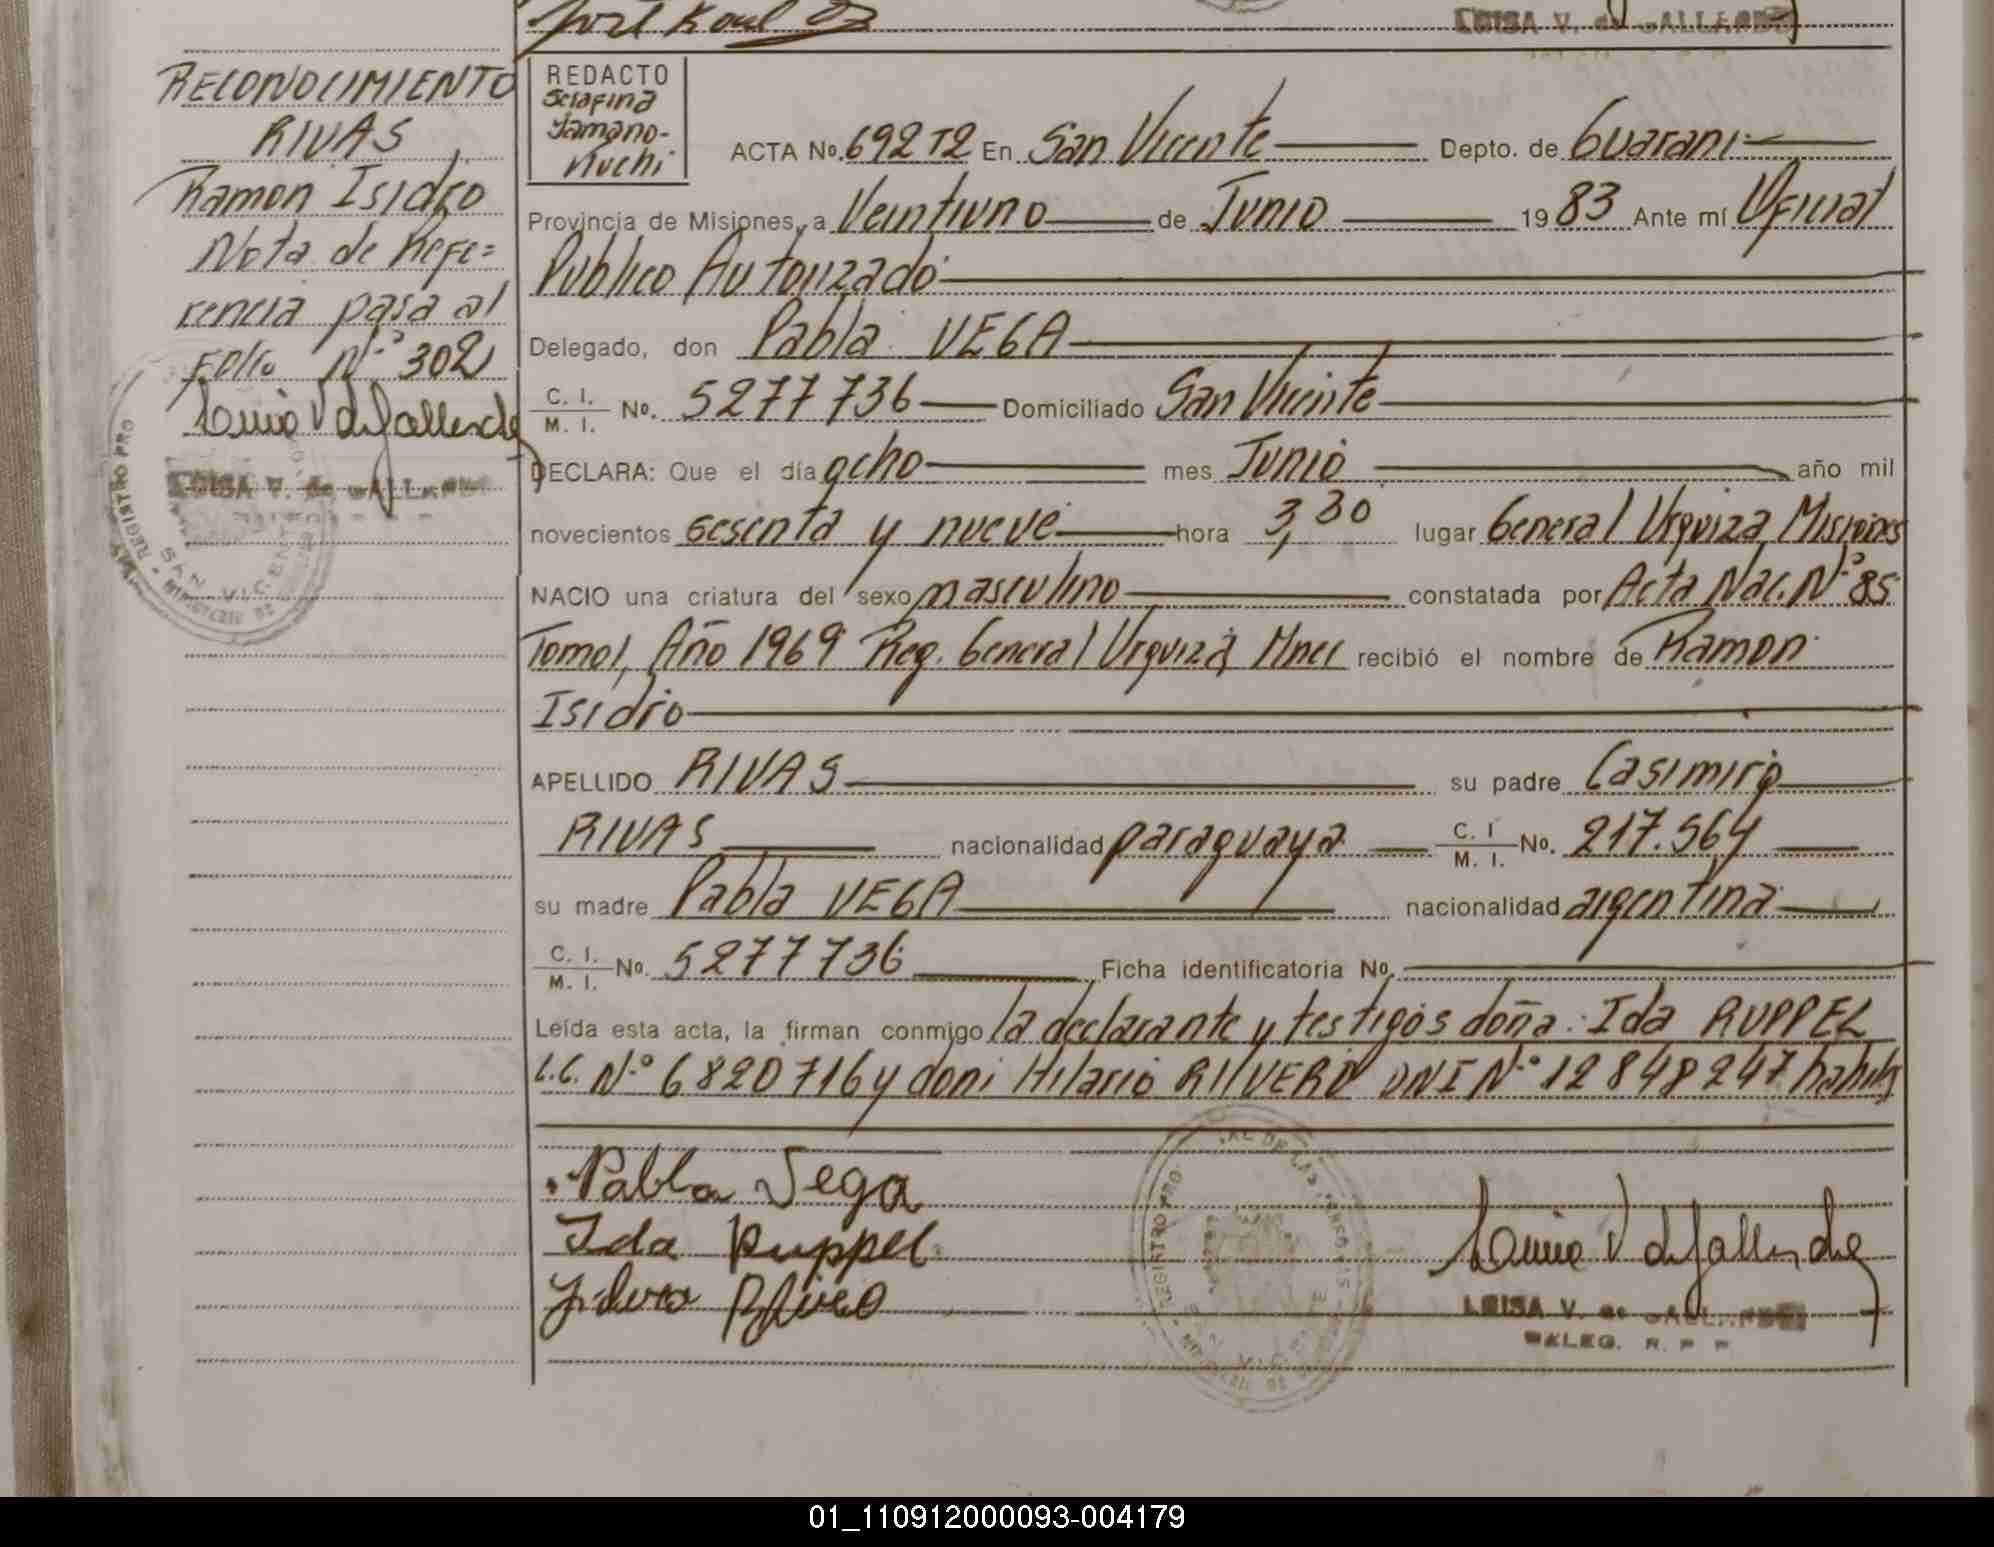 LUISA V. de GALLARDO
RECONOCIMIENTO
RIVAS
Ramon Isidro
Nota de Refe=
rencia pasa al
Folio Nº 302
REDACTO
Serafina
ACTA Nº. 692 T2 En San Vicente Depto. de Guarani
Provincia de Misiones, a Veintiuno de Junio 1983 Ante mí Oficial
Publico Autorizado
Delegado, don Pabla VEGA
C. I. / M. I. No. 5277736 Domiciliado San Vicente
DECLARA: Que el día ocho mes Junio año mil
novecientos sesenta y nueve hora 3,30 lugar General Urquiza, Misiones
NACIO una criatura del sexo masculino constatada por Acta Nac. Nº 85
Tomo 1, Año 1969 Reg. General Urquiza, Mnes recibió el nombre de Ramon
Isidro
APELLIDO RIVAS su padre Casimiro
RIVAS nacionalidad paraguaya C. I / M. I. No. 217.564
su madre Pabla VEGA nacionalidad argentina
C. I. / M. I. No. 5277736 Ficha identificatoria No.
Leída esta acta, la firman conmigo la declarante y testigos doña: Ida RUPPEL
L.C. Nº 6820716 y don: Hilario DNI Nº 12848247 habiles
Pabla Vega
Ida Ruppel
LUISA V. de
DELEG. R. P. P.
REGISTRO PRO
SAN VICENTE
01_110912000093-004179